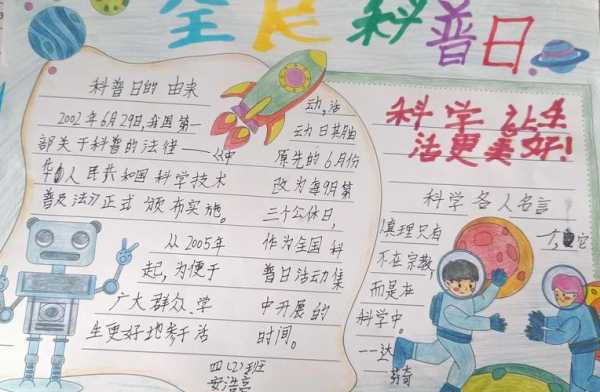 全民科普日
科普日的 由来
2002年6月29日,我国第一
部关于科普的法律——《中
华人民共和国科学技术
普及法》正式 颁布实施。
从2005年
起,为便于
广大群众、学
生更好地参于活
动,活
动日其胎
原先的6月份
改为每9月第
三个公休日,
作为全国科
普日活动集
中开展的
时间。
四(2)班
安浩亮
科学让生
活更美好!
科学名人名言
真理只有 一个,它
不在宗教,
而是在
科学中。
——达
芬奇